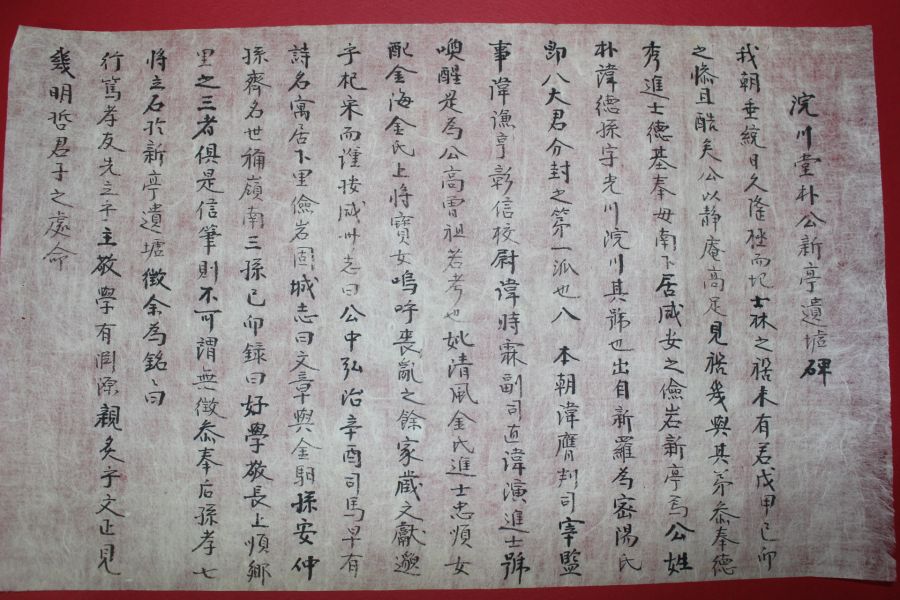 浣川堂朴公新亭遺墟碑
我朝垂統日久隆極而圮士林之禍未有若戊甲己卯
之慘且酷矣公以靜庵高足見禍幾與其弟叅奉德
秀進士德基奉母南下居咸安之儉岩新亭焉公姓
朴諱德孫字光川浣川其號也出自新羅為密陽氏
即八大君分封之第一派也入本朝諱膺判司宰監
事諱漁亨彰信校尉諱時霖副司直諱演進士號
喚醒是為公高曾祖若考也妣清風金氏進士忠順女
配金海金氏上將寶女嗚呼喪亂之餘家藏文獻邈
乎杞宋而謹按咸州志曰公中弘治辛酉司馬早有
詩名寓居下里儉岩固城志曰文章與金馹孫安仲
孫齊名世稱嶺南三孫己卯錄曰好學敬長上順鄉
里之三者俱是信筆則不可謂無徵叅奉后孫孝七
將立石於新亭遺墟徵余為銘銘曰
行篤孝友先立乎主敬學有淵源親炙乎文正見
幾明哲君子之處命